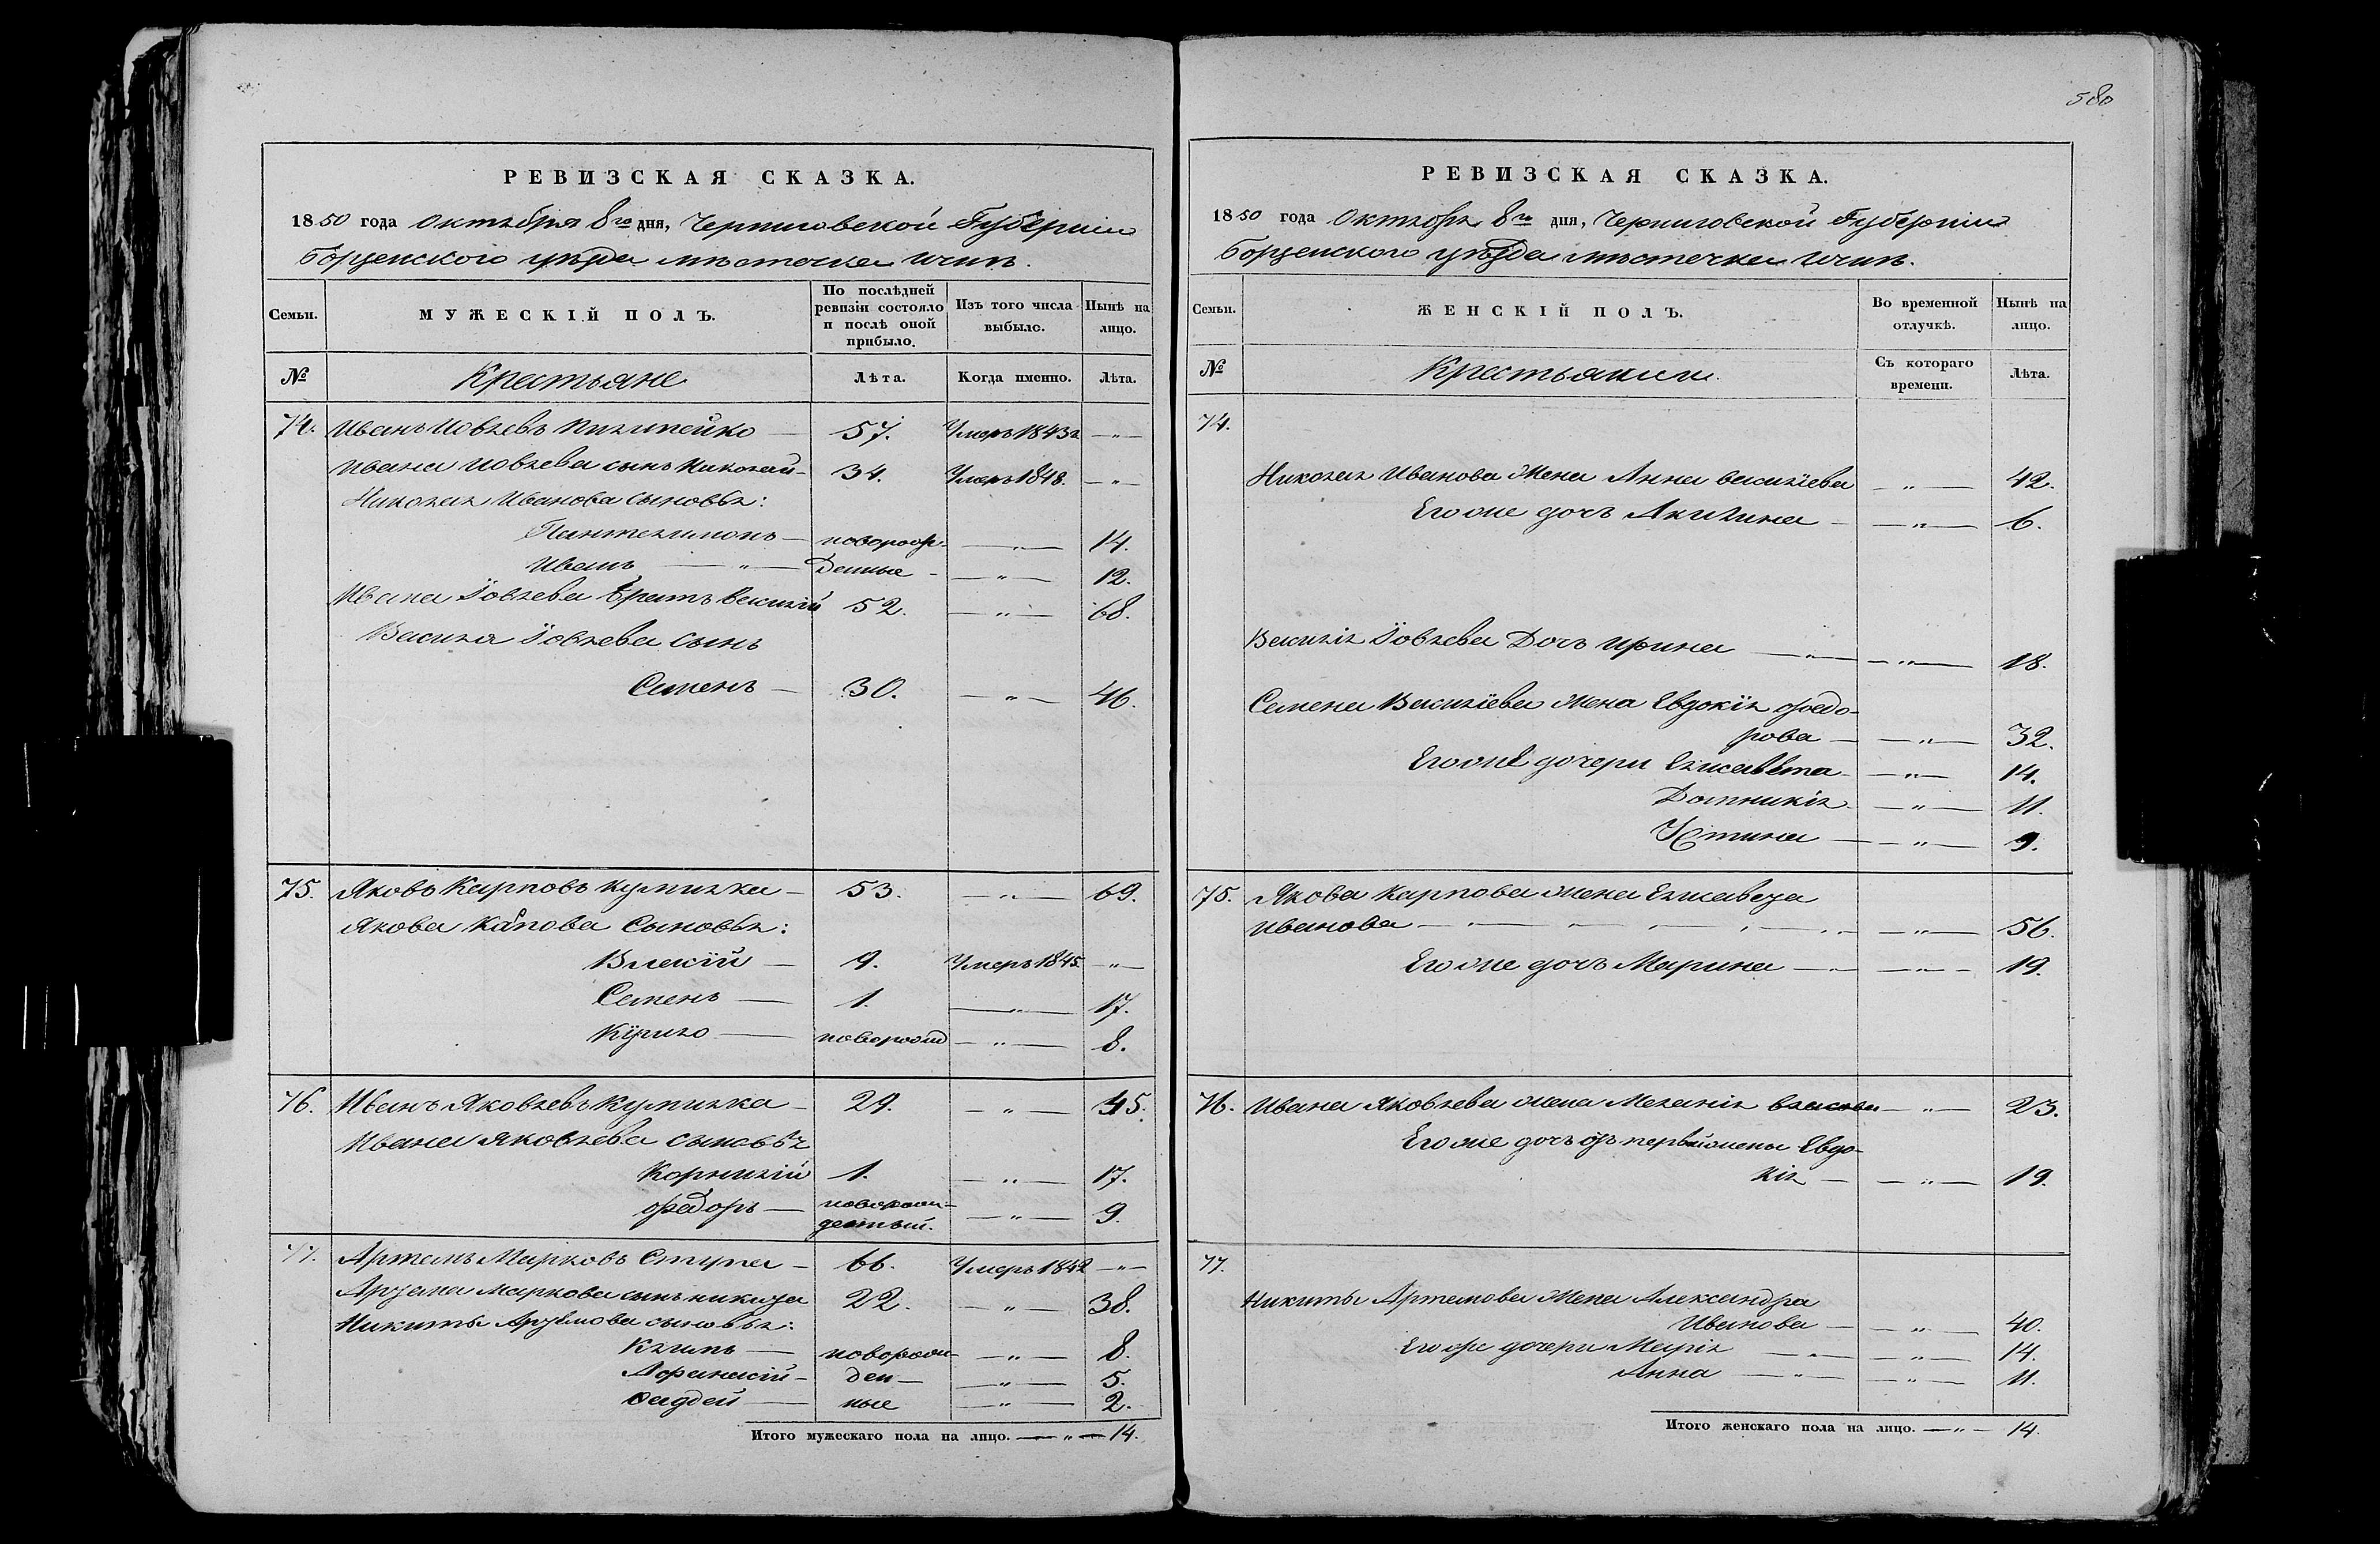 580
РЕВИЗСКАЯ СКАЗКА.
1850 года Октября 8го дня, Черниговской Губерніи
Борзенского уѣзда мѣстечка Ични.
Семьи. МУЖЕСКІЙ ПОЛЪ. По послѣдней ревизіи состояло и послѣ оной прибыло. Изъ того числа выбыло. Нынѣ на лицо.
№ Крестьяне Лѣта. Когда именно. Лѣта.
74. Иванъ Іовлевъ 57. Умеръ 1843г — " —
Ивана Іовлева сынъ Николай — 34. Умеръ 1848. — " —
Николая Иванова сыновья:
Пантелимонъ — новорож- — " — 14.
Иванъ — " — денные — — " — 12.
Ивана Іовлева братъ Василій 52. — " — 68.
Василія Іовлева сынъ
Семенъ — 30. — " — 46.
75. Яковъ Карповъ Кулишка — 53. — " — 69.
Якова Капова Сыновья:
Власій — 9. Умеръ 1845 — " —
Семенъ — 1. — " — 17.
Кирило — новорожд — " — 8.
76. Иванъ Яковлевъ Кулишка — 29. — " — 45.
Ивана Яковлева сыновья
Корнилій 1. — " — 17.
Федоръ — новорож- — " — 9.
денный.
77. Артемъ Марковъ Ступа — 66. Умеръ 1842 — " —
Артема Маркова сынъ Никита 22. — " — 38.
Никиты Артемова сыновья:
Климъ — новорож- — " — 8.
Афанасій — ден — — " — 5.
Фаддей — ные — " — 2.
Итого мужескаго пола на лицо. — " — 14.
РЕВИЗСКАЯ СКАЗКА.
1850 года Октября 8го дня, Черниговской Губерніи
Борзенского уѣзда мѣстечка Ични.
Семьи. ЖЕНСКІЙ ПОЛЪ. Во временной отлучкѣ. Нынѣ на лицо.
№ Крестьянки. Съ котораго времени. Лѣта.
74.
Николая Иванова Жена Анна Василіева — " — 42.
Его же дочъ Акилина — — " — 6.
Василія Іовлева Дочъ Ирина — " — — " — 18.
Семена Василіева Жена Евдокія Федо-
рова — — " — 32.
Его же дочери Елисавета — — " — 14.
Домникія — — " — 11.
Устина — — " — 9.
75. Якова Карпова жена Елисавета
Иванова — — " — 56.
Его же дочъ Марина — " — — " — 19.
76. Ивана Яковлева жена Меланія Власова — " — 23.
Его же дочъ отъ первой жены Евдо-
кія — — " — 19.
77.
Никиты Артемова Жена Александра
Иванова — — " — 40.
Его же дочери Марія — " — — " — 14.
Анна — " — — " — 11.
Итого женскаго пола на лицо. — " — 14.